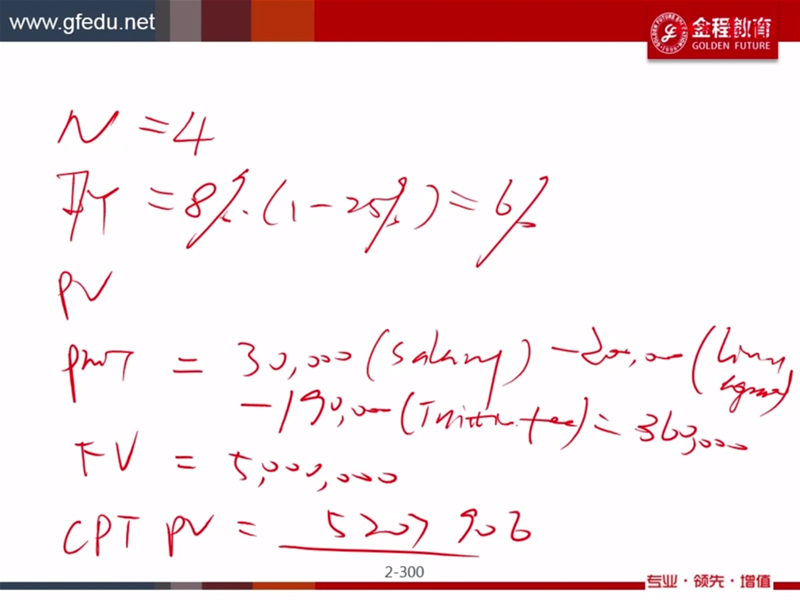 www.gfedu.net
金程教育
GOLDEN FUTURE
N = 4
I/Y = 8%·(1-25%) = 6%
PV
PMT = 30,000 (Salary) - 200,000 (Living
-190,000 (Tuition fee) = 360,000
FV = 5,000,000
CPT PV = 5207906
2-300
专业·领先·增值